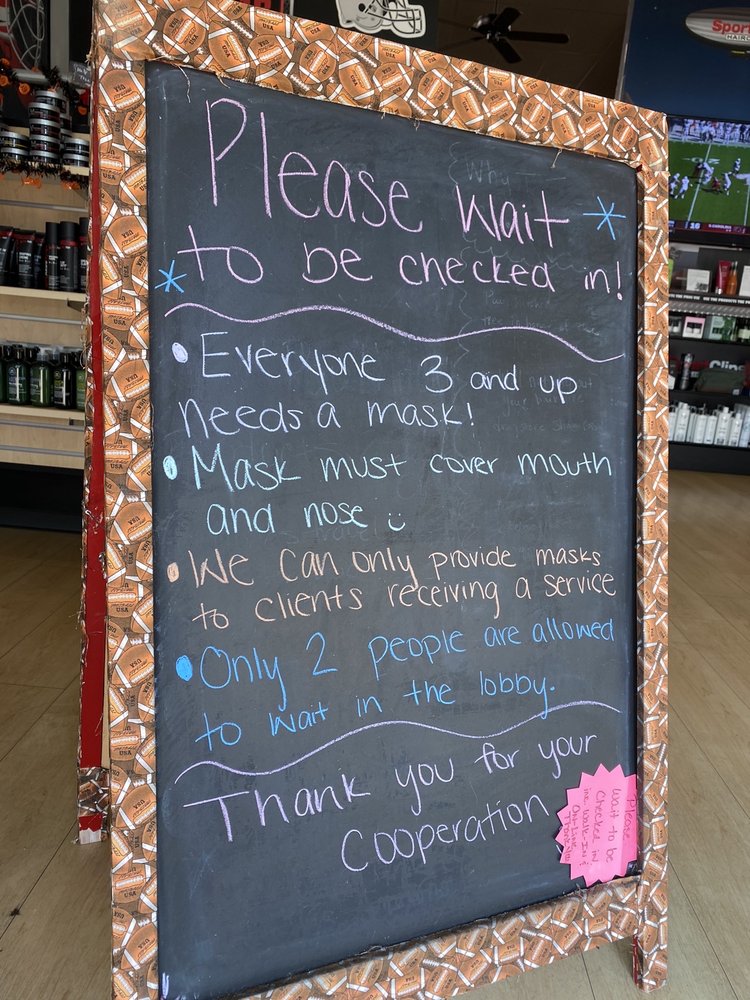 Please Wait
to be checked in!
Everyone 3 and up
needs a mask!
Mask must cover mouth
and nose
We can only provide masks
to clients receiving a service
Only 2 people are allowed
to wait in the lobby.
Thank you for your
Cooperation
Please
Wait to be
Checked in
USA